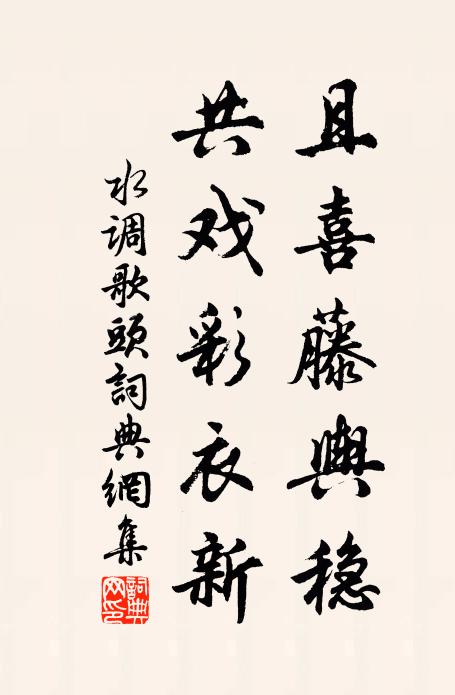 且喜藤舆稳
共戏彩衣新
水调歌頭詞典網集
詞典
网印